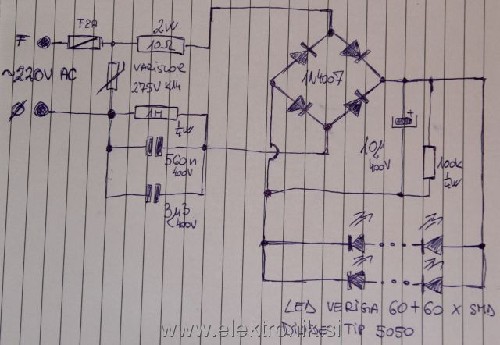 F
~220V AC
Ø
2W
10Ω
VARISTOR
275V K14
1M
½W
560n
400V
3µ3
400V
1N4007
10µ
400V
100k
½W
LED VERIGA 60+60 X SMD
DIODE TIP 5050
www.elektronik.si